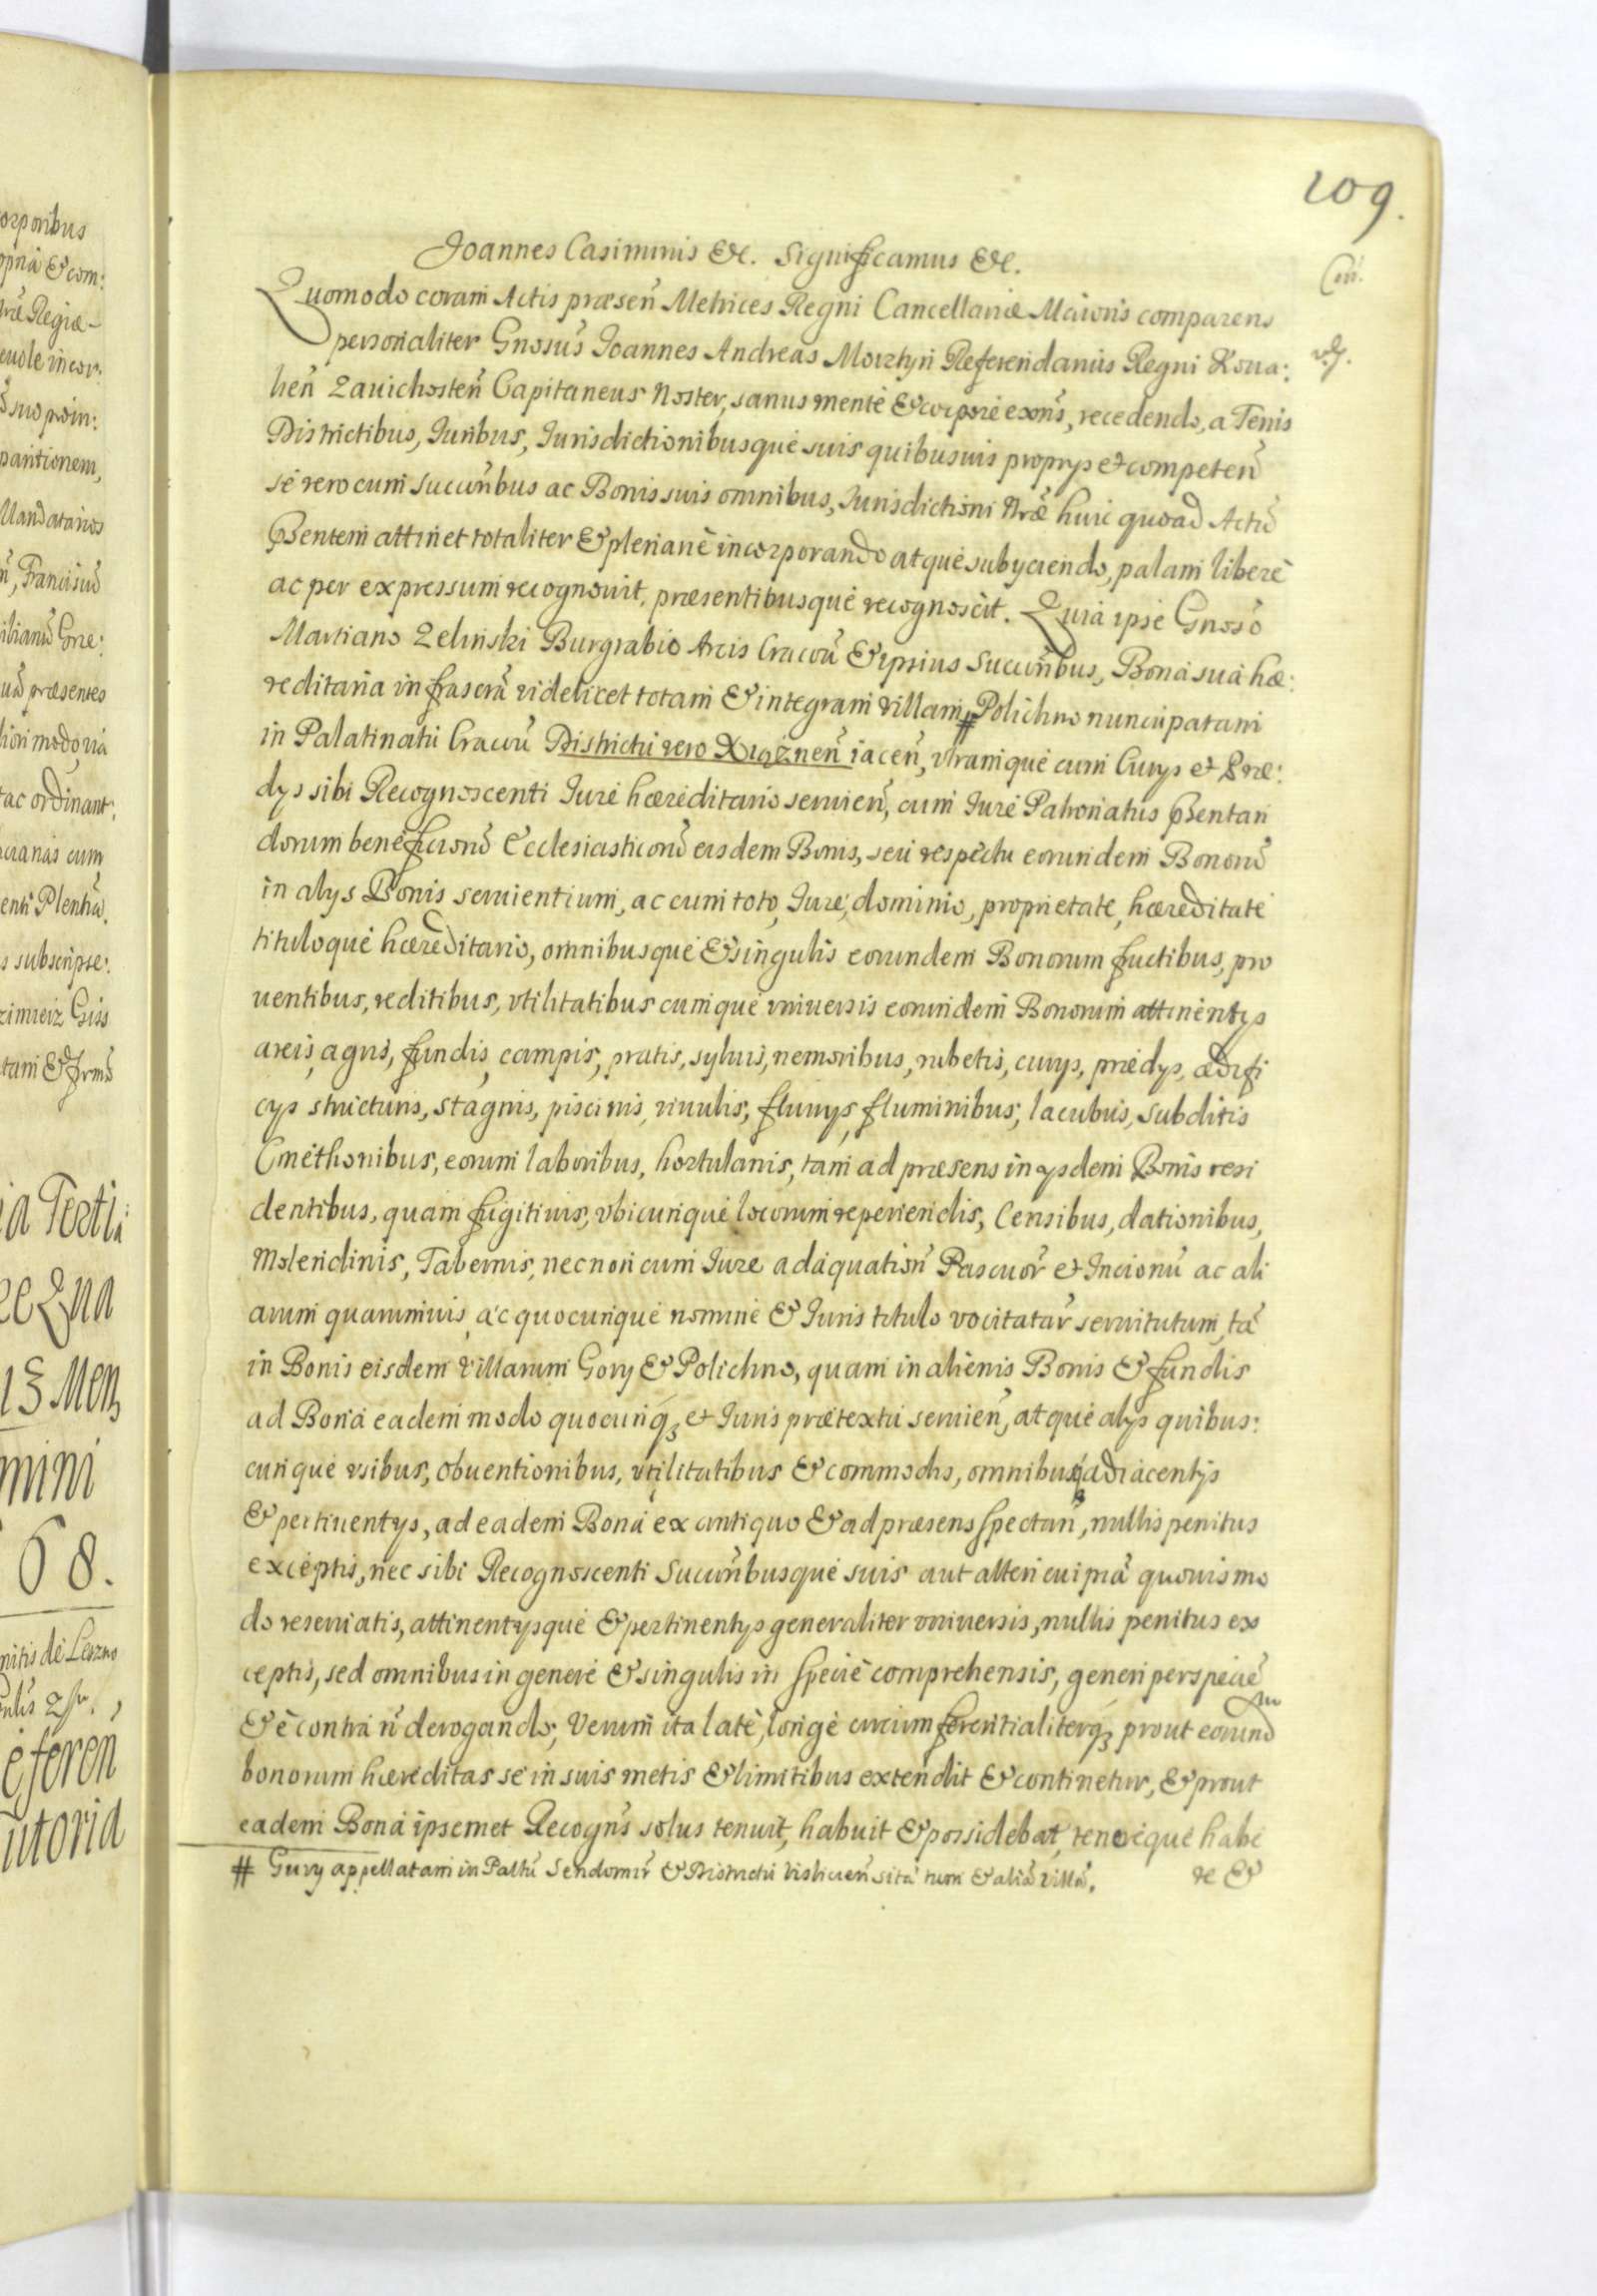 109.
Joannes Casimirus &c. Significamus &c.
Quomodo coram Actis præsen̄ Metrices Regni Cancellariæ Maioris comparens
personaliter Gnosus Joannes Andreas Morztyn Referendarius Regni Koua:
lien̄ Zauichosten̄ Capitaneus Noster, sanus mente & corpore exns, recedendo, a Terris
Districtibus, Iuribus, Iurisdictionibusque suis quibusuis proprys et competen̄
se vero cum Succrībus ac Bonis suis omnibus, Iurisdictioni Nræ huic quoad Actū
Pñtem attinet totaliter & plenarie incorporando atque subyciendo, palam libere
ac per expressum recognouit, præsentibusque recognoscit. Quia ipse Gnoso
Martiano Zelinski Burgrabio Arcis Cracov̄ & ipsius Succrībus, Bona sua hæ:
reditaria infrascrā videlicet totam & integram villam # Polichno nuncupatam
in Palatinatu Cracov̄ Districtu vero Xiąznen̄ iacen̄, vtramque cum Curys et Præ:
dys sibi Recognoscenti Iure hæreditario seruien̄, cum Iure Patronatus Pñtan
dorum beneficiorū Ecclesiasticorū eisdem Bonis, seu respectu eorundem Bonorū
in alys Bonis seruientium, ac cum toto Iure, dominio, proprietate, hæreditate
tituloque hæreditario, omnibusque & singulis eorundem Bonorum fructibus, pro
uentibus, reditibus, vtilitatibus cumque vniuersis eorundem Bonorum attinentys
areis, agris, fundis, campis, pratis, syluis, nemoribus, rubetis, curys, prædys, ædifi
cys structuris, stagnis, piscinis, riuulis, fluuys, fluminibus, lacubus, subditis
Cmethonibus, eorum laboribus, hortulanis, tam ad præsens in ysdem Bonis resi
dentibus, quam fugitiuis, vbicunque locorum reperiendis, Censibus, dationibus,
Molendinis, Tabernis, necnon cum Iure adaquation̄ Pascuor̄ et Incionū ac ali
arum quarumuis, ac quocunque nomine & Iuris titulo vocitatar̄ seruitutum, tā
in Bonis eisdem villarum Gory & Polichno, quam in alienis Bonis & fundis
ad Bona eadem modo quocunq₃ et Iuris prætextu seruien̄, atque alys quibus:
cunque vsibus, obuentionibus, vtilitatibus & commodis, omnibusq adiacentys
& pertinentys, ad eadem Bona ex antiquo & ad præsens spectan̄, nullis penitus
exceptis, nec sibi Recognoscenti Succrībusque suis aut alteri cuipiā quouis mo
do reseruatis, attinentysque & pertinentys generaliter vniuersis, nullis penitus ex
ceptis, sed omnibus in genere & singulis in specie comprehensis, generi per speciē
& e contra n̄ derogando; Verum ita late, longe circumferentialiterq₃ prout eorund
bonorum hæreditas se in suis metis & limitibus extendit & continetur, & prout
eadem Bona ipsemet Recogns solus tenuit, habuit & possidebat, tenereque habe
re &
# Gury appellatam in Pallū Sendomir̄ & Districtu Visliciен̄ sitā tum & aliā villā.